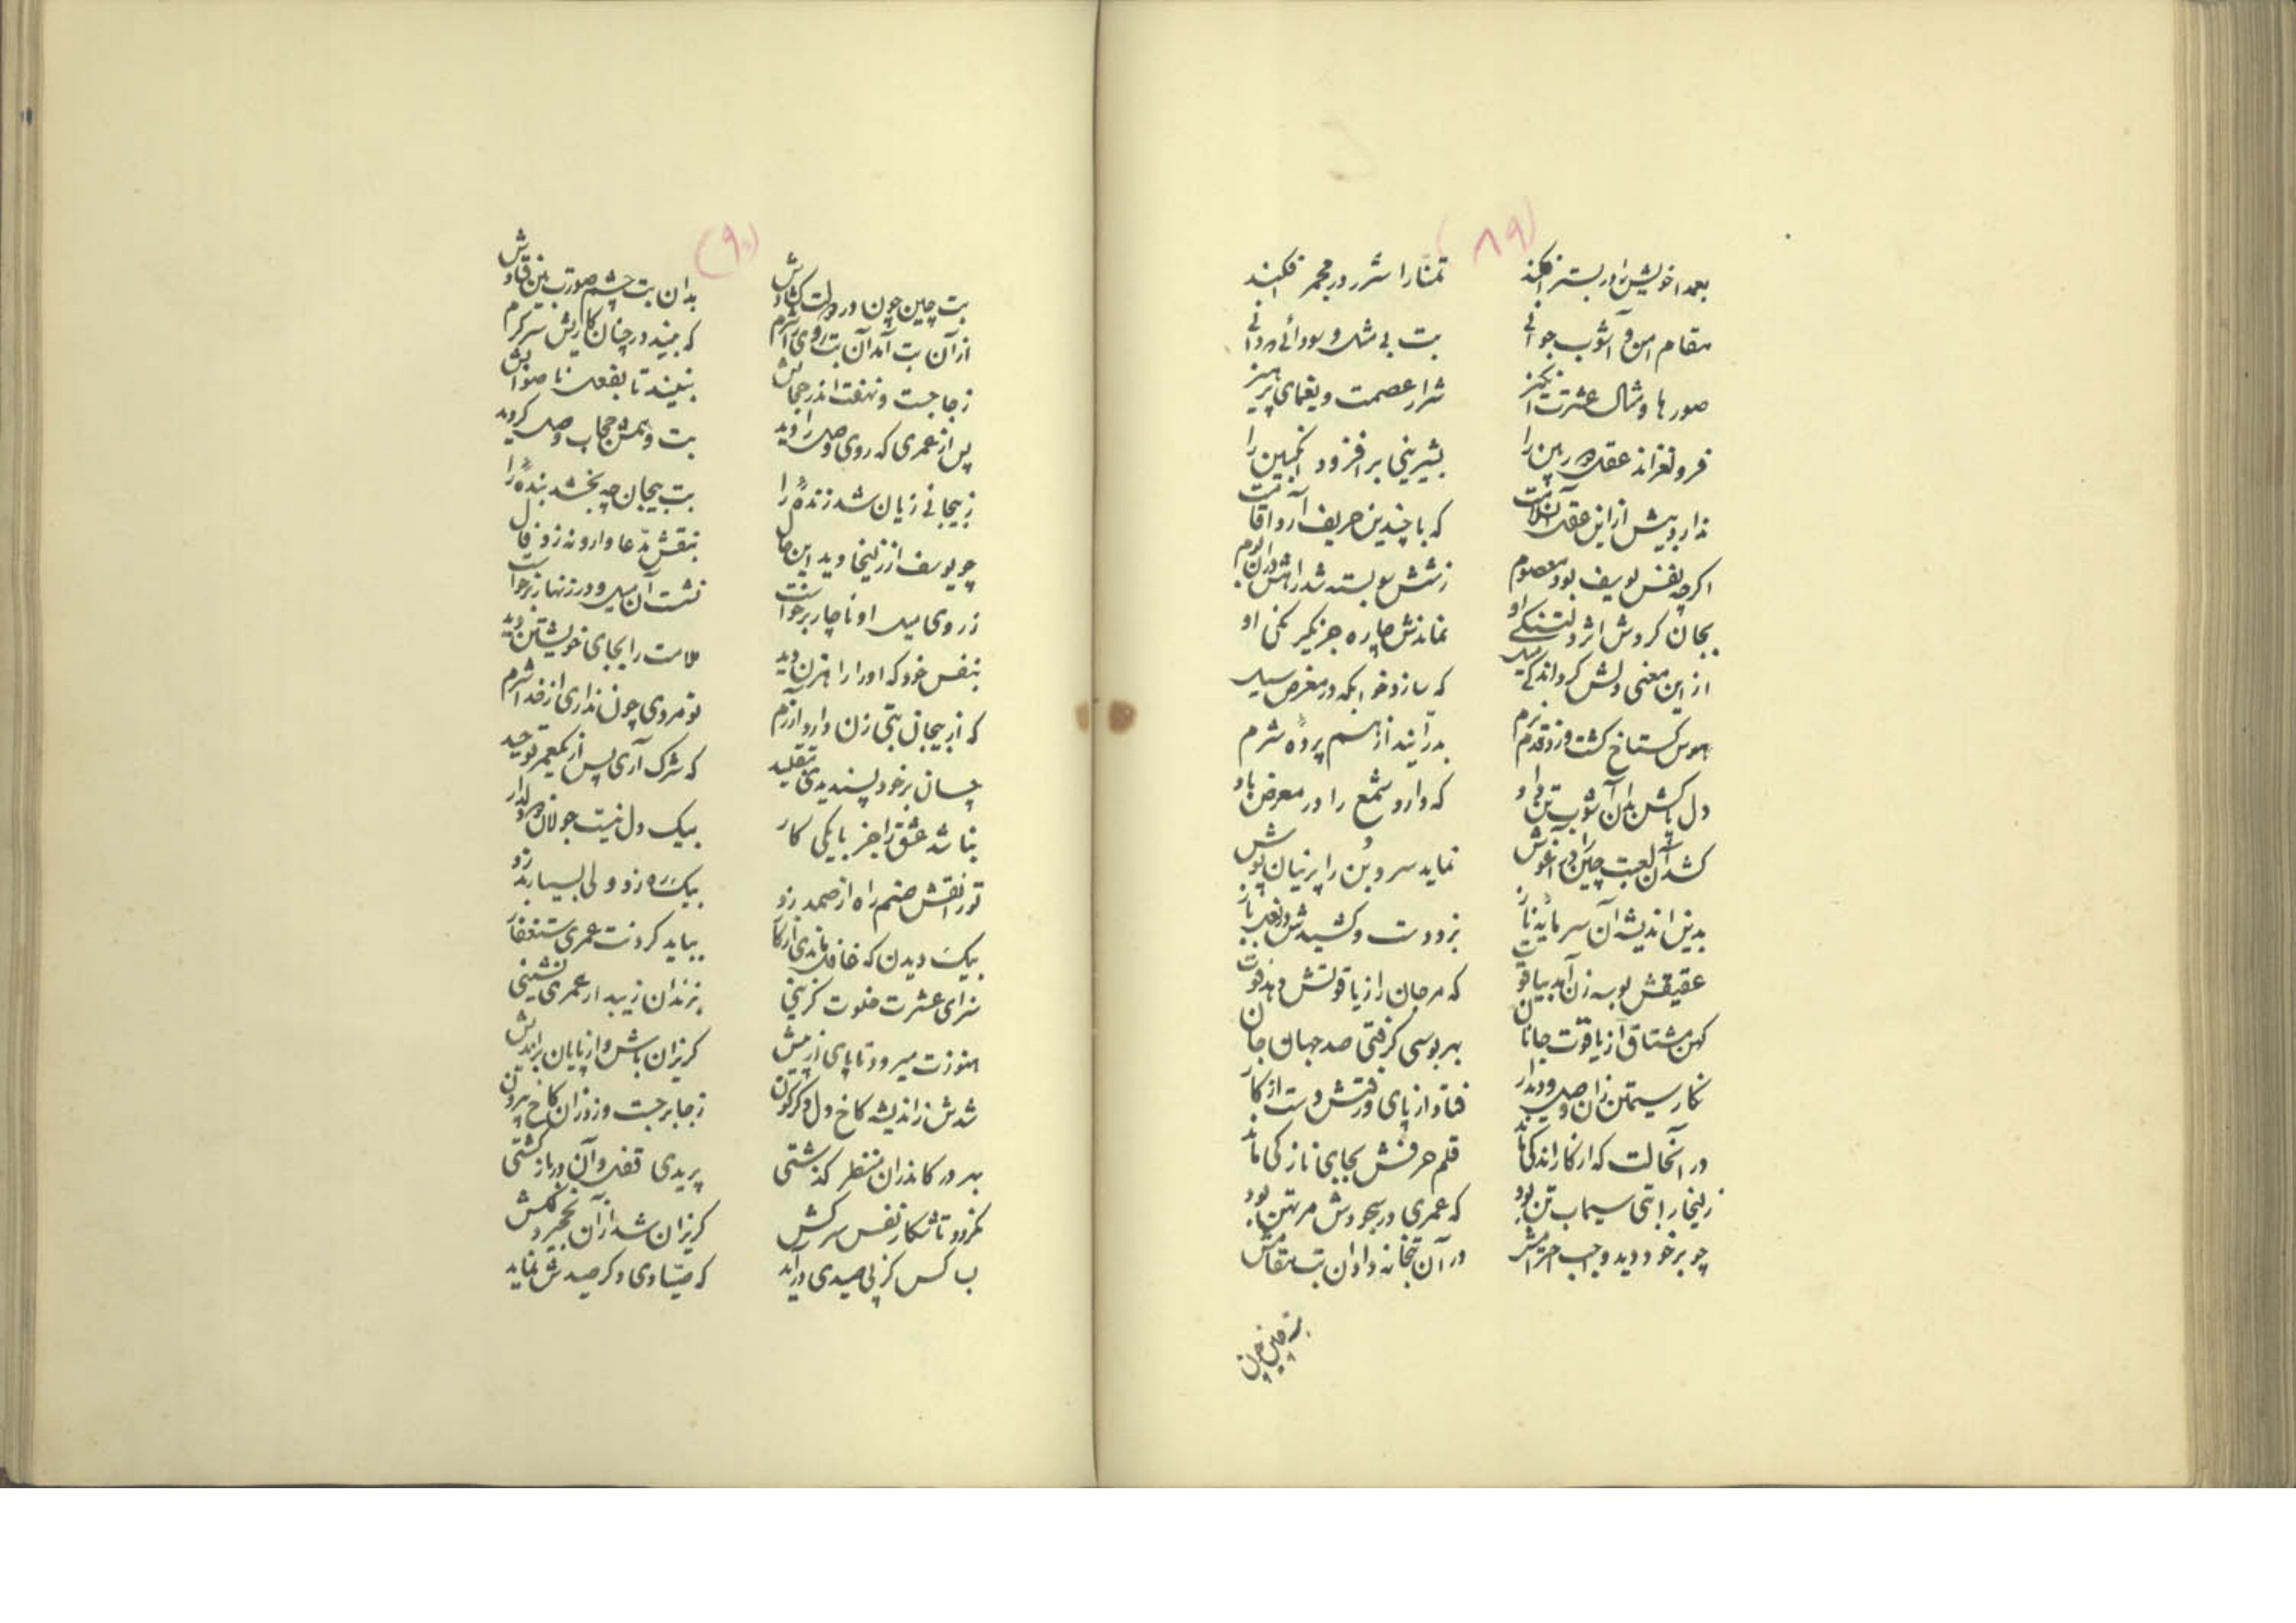 (۸۹)
بعمدا خویش را در بستر افکند تمنا را شرر در مجمر افکند
مقام امن و آشوب جوانی بت بی مثل و سودائی
صورها و مثال عشرت انگیز شرار عصمت و یغمای پرهیز
فرو لغزاند عقل را بشیرینی برافزود انگبین را
ندارد بیش از این عقل که با چندین حریف آرد اقامت
اگرچه نفس یوسف بود معصوم ز شش سو بسته شد راهش
بجان کردش اثر دلتنگی او نماندش چاره جز یکرنگی او
از این معنی دلش کرد اندکی میل که سازد خوابگه در معرض سیل
هوس گستاخ گشت و زد قدم بدرانید از هم پرده شرم
دل پاکش بدان آشوب تن داد که دارد شمع را در معرض باد
کشد آن لعبت چین را در آغوش نماید سرو بن را پرنیان پوش
بدین اندیشه آن سرمایه ناز بزد دست و کشیدش
عقیقش بوسه زن آمد بیاقوت که مرجان را ز یاقوتش دهد قوت
کهن مشتاق از یاقوت جانان بهر بوسی گرفتی صد جهان جان
نگار سیمتن زان وصل و دیدار فتاد از پای و رفتش دست از کار
در آنحالت که از کار اندکی ماند قلم حرفش بجای نازکی ماند
زلیخا را بتی سیماب تن بود که عمری در سجودش مرتهن بود
چو بر خود دید واجب احترامش در آن بتخانه داد آن بت مقامش
(۹۰)
بت چین چون در دولت گشادش بدان بت چشم صورت بین فتادش
از آن بت آمد آن بت روی را شرم که بیند در چنان کاریش سرگرم
ز جا جست و نهفت اندر حجابش نبیند تا بفعل ناصوابش
پس از عمری که روی وصل را دید بت و همش حجاب وصل گردید
ز بیجانی زیان شد زنده را بت بیجان چه بخشد بنده را
چو یوسف از زلیخا دید این حال بنقش مدعا وارونه زد فال
ز روی میل او ناچار برخواست نشست آن میل و در زنهار برخواست
بنفس خود که او را راهزن دید ملامت را بجای خویشتن دید
که از بیجان بتی زن دارد آزرم تو مردی چون نداری از خدا شرم
چسان بر خود پسندیدی تقلید که شرک آری پس از یکعمر توحید
نباشد عشق را جز با یکی کار بیک دل نیست جولان دو دلدار
تو را نقش صنم راه از صمد زد بیک ره زد ولی بسیار بد زد
بیک دیدن که غافل ماندی از کار بباید کردنت عمری استغفار
سزای عشرت خلوت گزینی بزندان زیبد ار عمری نشینی
هنوزت میرود تا پای از پیش گریزان باش و از پایان براندیش
شدش ز اندیشه کاخ دل دگرگون ز جا برجست و زد زان کاخ بیرون
بهر در کاندران منظر گذشتی پریدی قفل و آن در باز گشتی
نمرود تا شکار نفس سرکش گریزان شد از آن
بسا کس کز پی صیدی درآید که صیادی دگر صیدش نماید